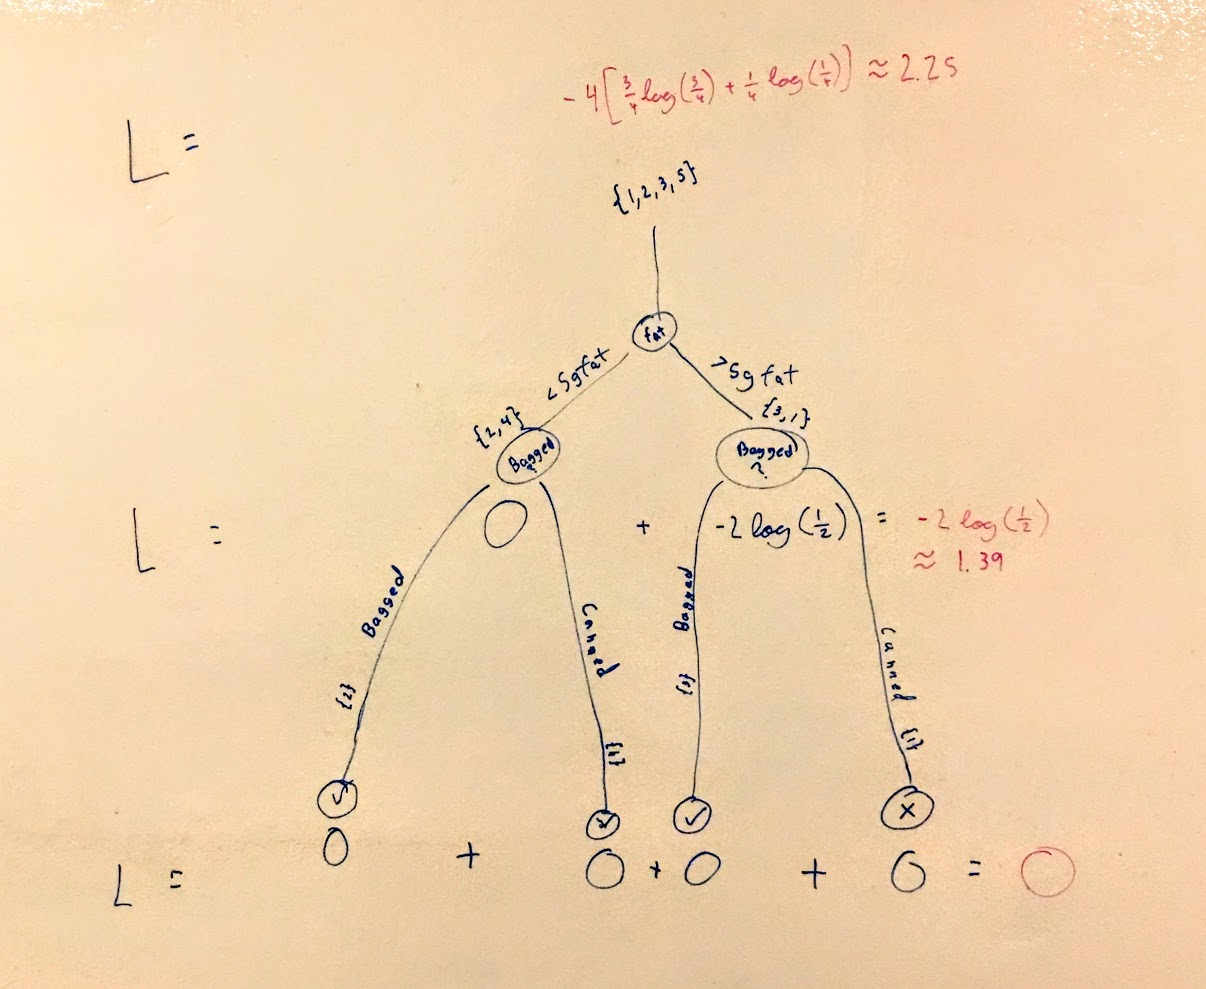 - 4 [ 3/4 log(3/4) + 1/4 log(1/4) ] ≈ 2.25
L =
{1,2,3,5}
fat
< 5g fat
>5g fat
{2,4}
{3,1}
Bagged ?
Bagged ?
L = 0 + -2 log(1/2) = -2 log(1/2)
≈ 1.39
Bagged
Canned
Bagged
Canned
{2}
{3}
{1}
✓
✓
x
L = 0 + 0 + 0 + 0 = 0